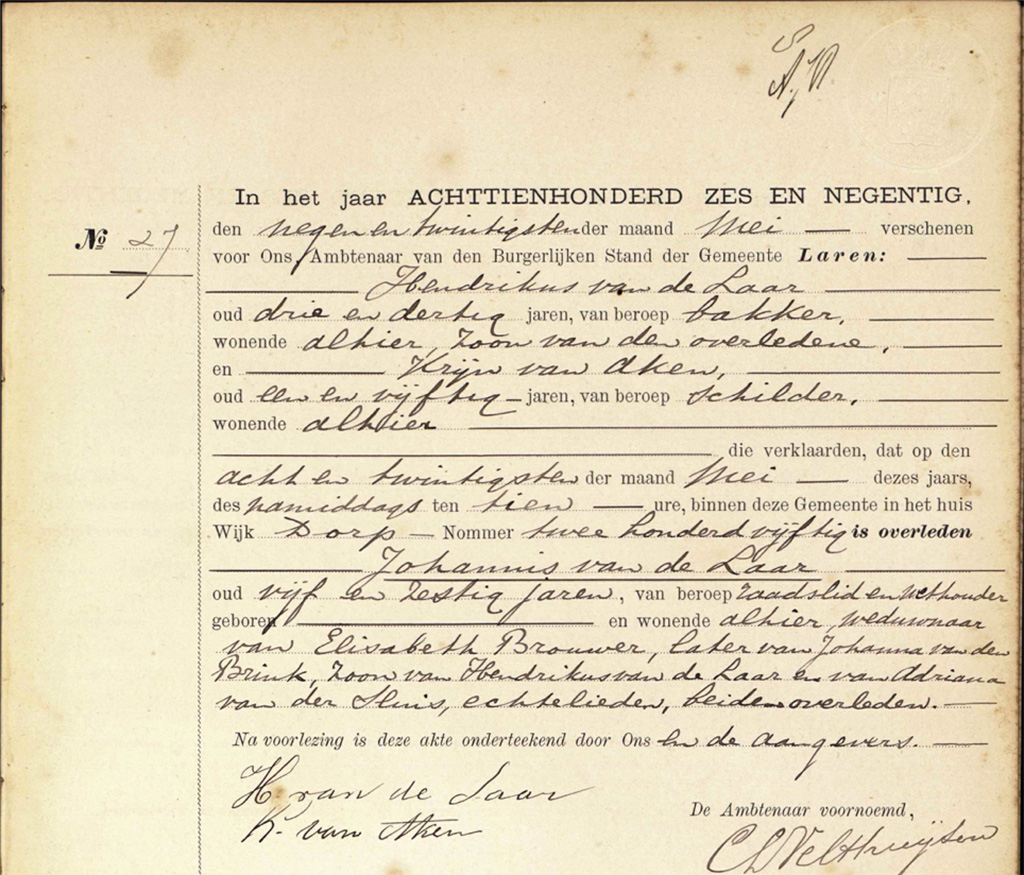 In het jaar ACHTTIENHONDERD ZES EN NEGENTIG,
No 27
den negen en twintigsten der maand Mei — verschenen
voor Ons, Ambtenaar van den Burgerlijken Stand der Gemeente Laren:
Hendrikus van de Laar
oud drie en dertig jaren, van beroep bakker,
wonende alhier, zoon van den overledene,
en Krijn van Aken,
oud een en vijftig jaren, van beroep schilder,
wonende alhier
die verklaarden, dat op den
acht en twintigsten der maand Mei — dezes jaars,
des namiddags ten tien — ure, binnen deze Gemeente in het huis
Wijk Dorp — Nommer twee honderd vijftig is overleden
Johannis van de Laar
oud vijf en zestig jaren, van beroep raadslid en wethouder
geboren en wonende alhier, weduwnaar
van Elisabeth Brouwer, later van Johanna van den
Brink, zoon van Hendrikus van de Laar en van Adriana
van der Sluis, echtelieden, beiden overleden. —
Na voorlezing is deze akte onderteekend door Ons en de aangevers. —
H. van de Laar
De Ambtenaar voornoemd,
K. van Aken